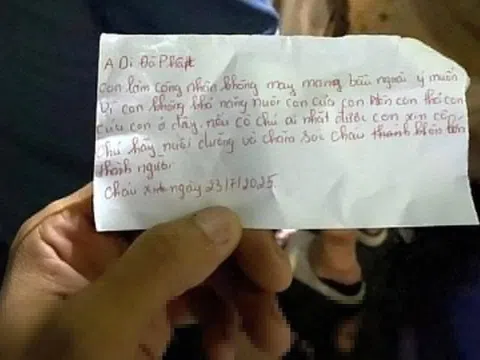 A Di Đà Phật
Con làm công nhân không may mang bầu ngoài ý muốn
Vì con không khả năng nuôi con của con lên con thả con
của con ở đây, nếu cô chú ai nhặt được con xin cô
chú hãy nuôi dưỡng và chăm sóc cháu thành
thành người
cháu sinh ngày 23/7/2025.